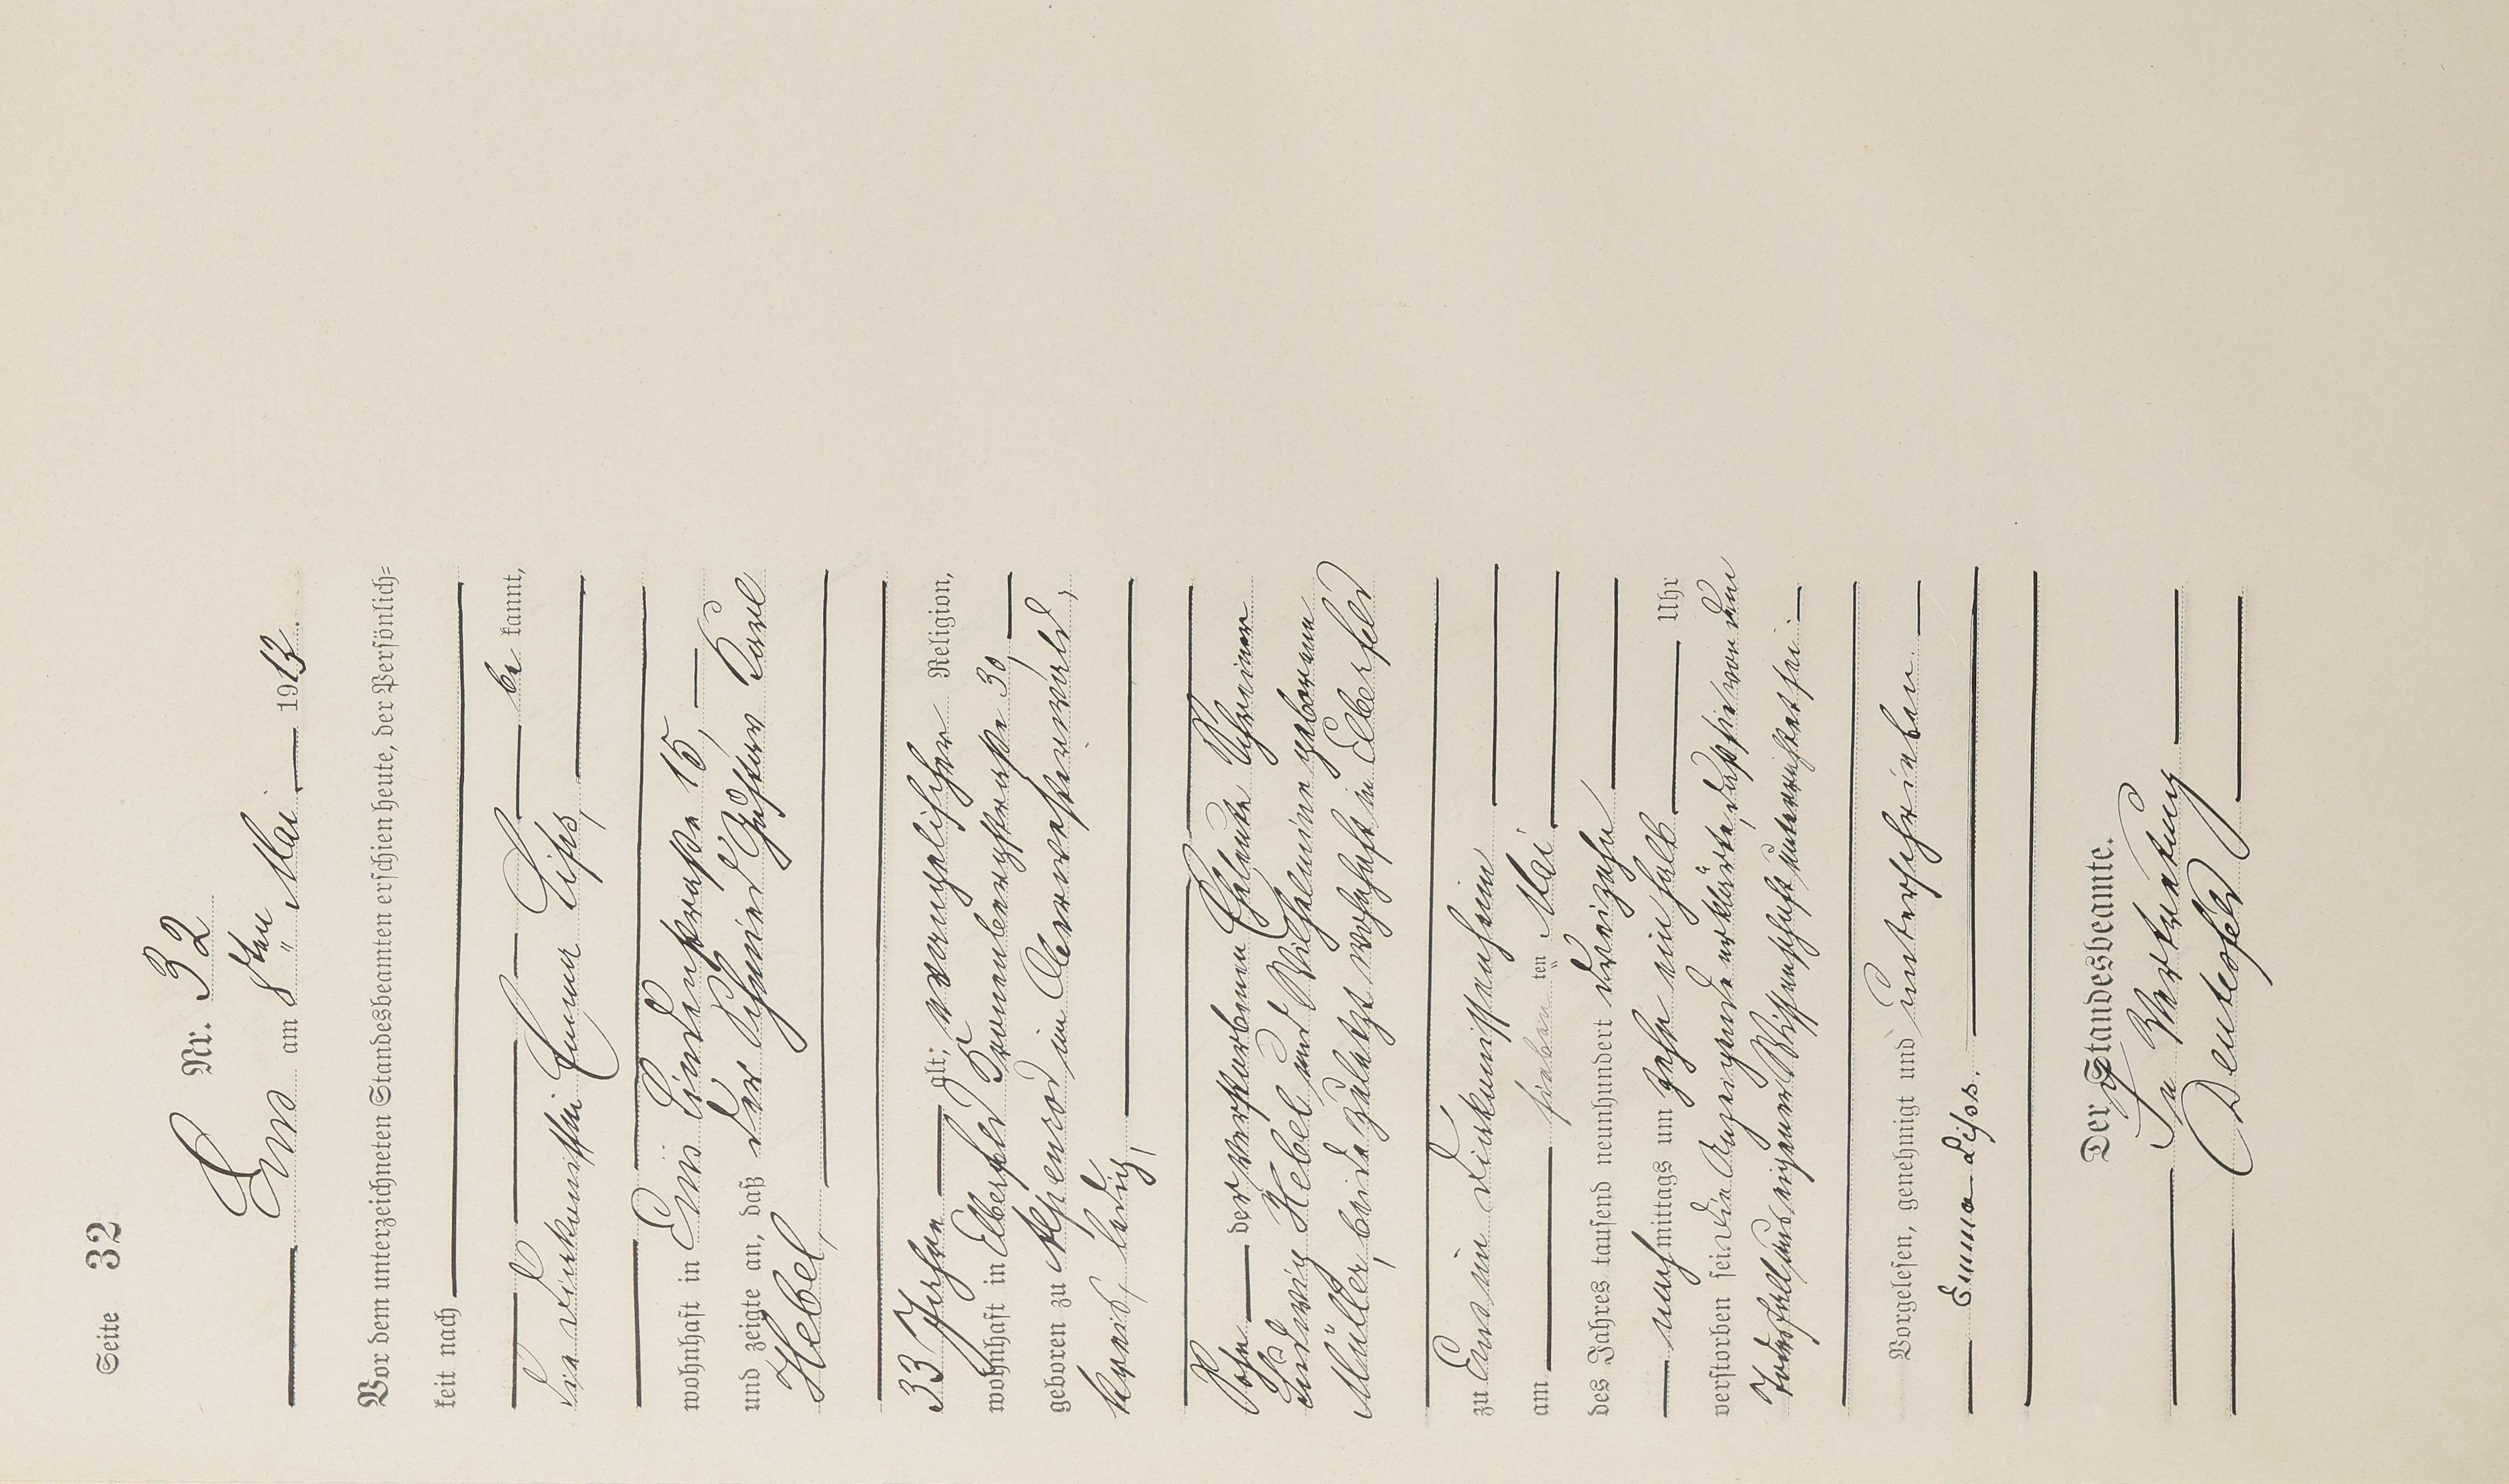 Seite 32
Nr. 32
Ems am 8ten Mai 1913.
Vor dem unterzeichneten Standesbeamten erschien heute, der Persönlich-
keit nach
be kannt,
die Diakonissin Emma Liss,
wohnhaft in Ems Lindenstraße 15,
und zeigte an, daß der Schmied Gustav Karl
Hebel,
33 Jahre alt, evangelischer Religion,
wohnhaft in Elberfeld Tannenbergstraße 30,
geboren zu Alpenrod im Oberwesterwald,
kreis, ledig,
Sohn der verstorbenen Eheleute Schreiner
Ludwig Hebel und Wilhelmine geborene
Müller, beide zuletzt wohnhaft in Elberfeld
zu Ems im Diakonissenheim
am sieben ten Mai
des Jahres tausend neunhundert dreizehn
nachmittags um zehn ein halb Uhr
verstorben sei. Die Anzeigende erklärte, daß sie von dem
Todesfall aus eigener Wissenschaft unterrichtet sei.
Vorgelesen, genehmigt und unterschrieben.
Emma Liss.
Der Standesbeamte.
In Vertretung